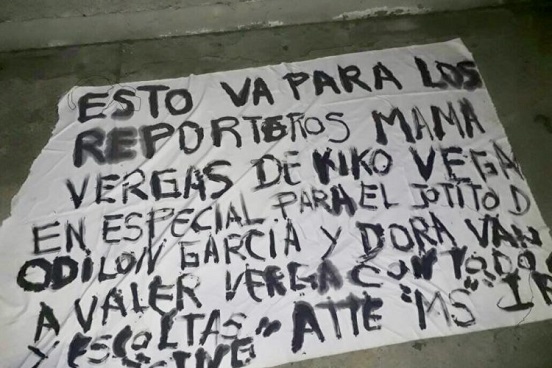 ESTO VA PARA LOS
REPORTEROS MAMA
VERGAS DE KIKO VEGA
EN ESPECIAL PARA EL JOTITO D
ODILON GARCIA Y DORA VAN
A VALER VERGA CON TODO
Y ESCOLTAS" ATTE "MS"